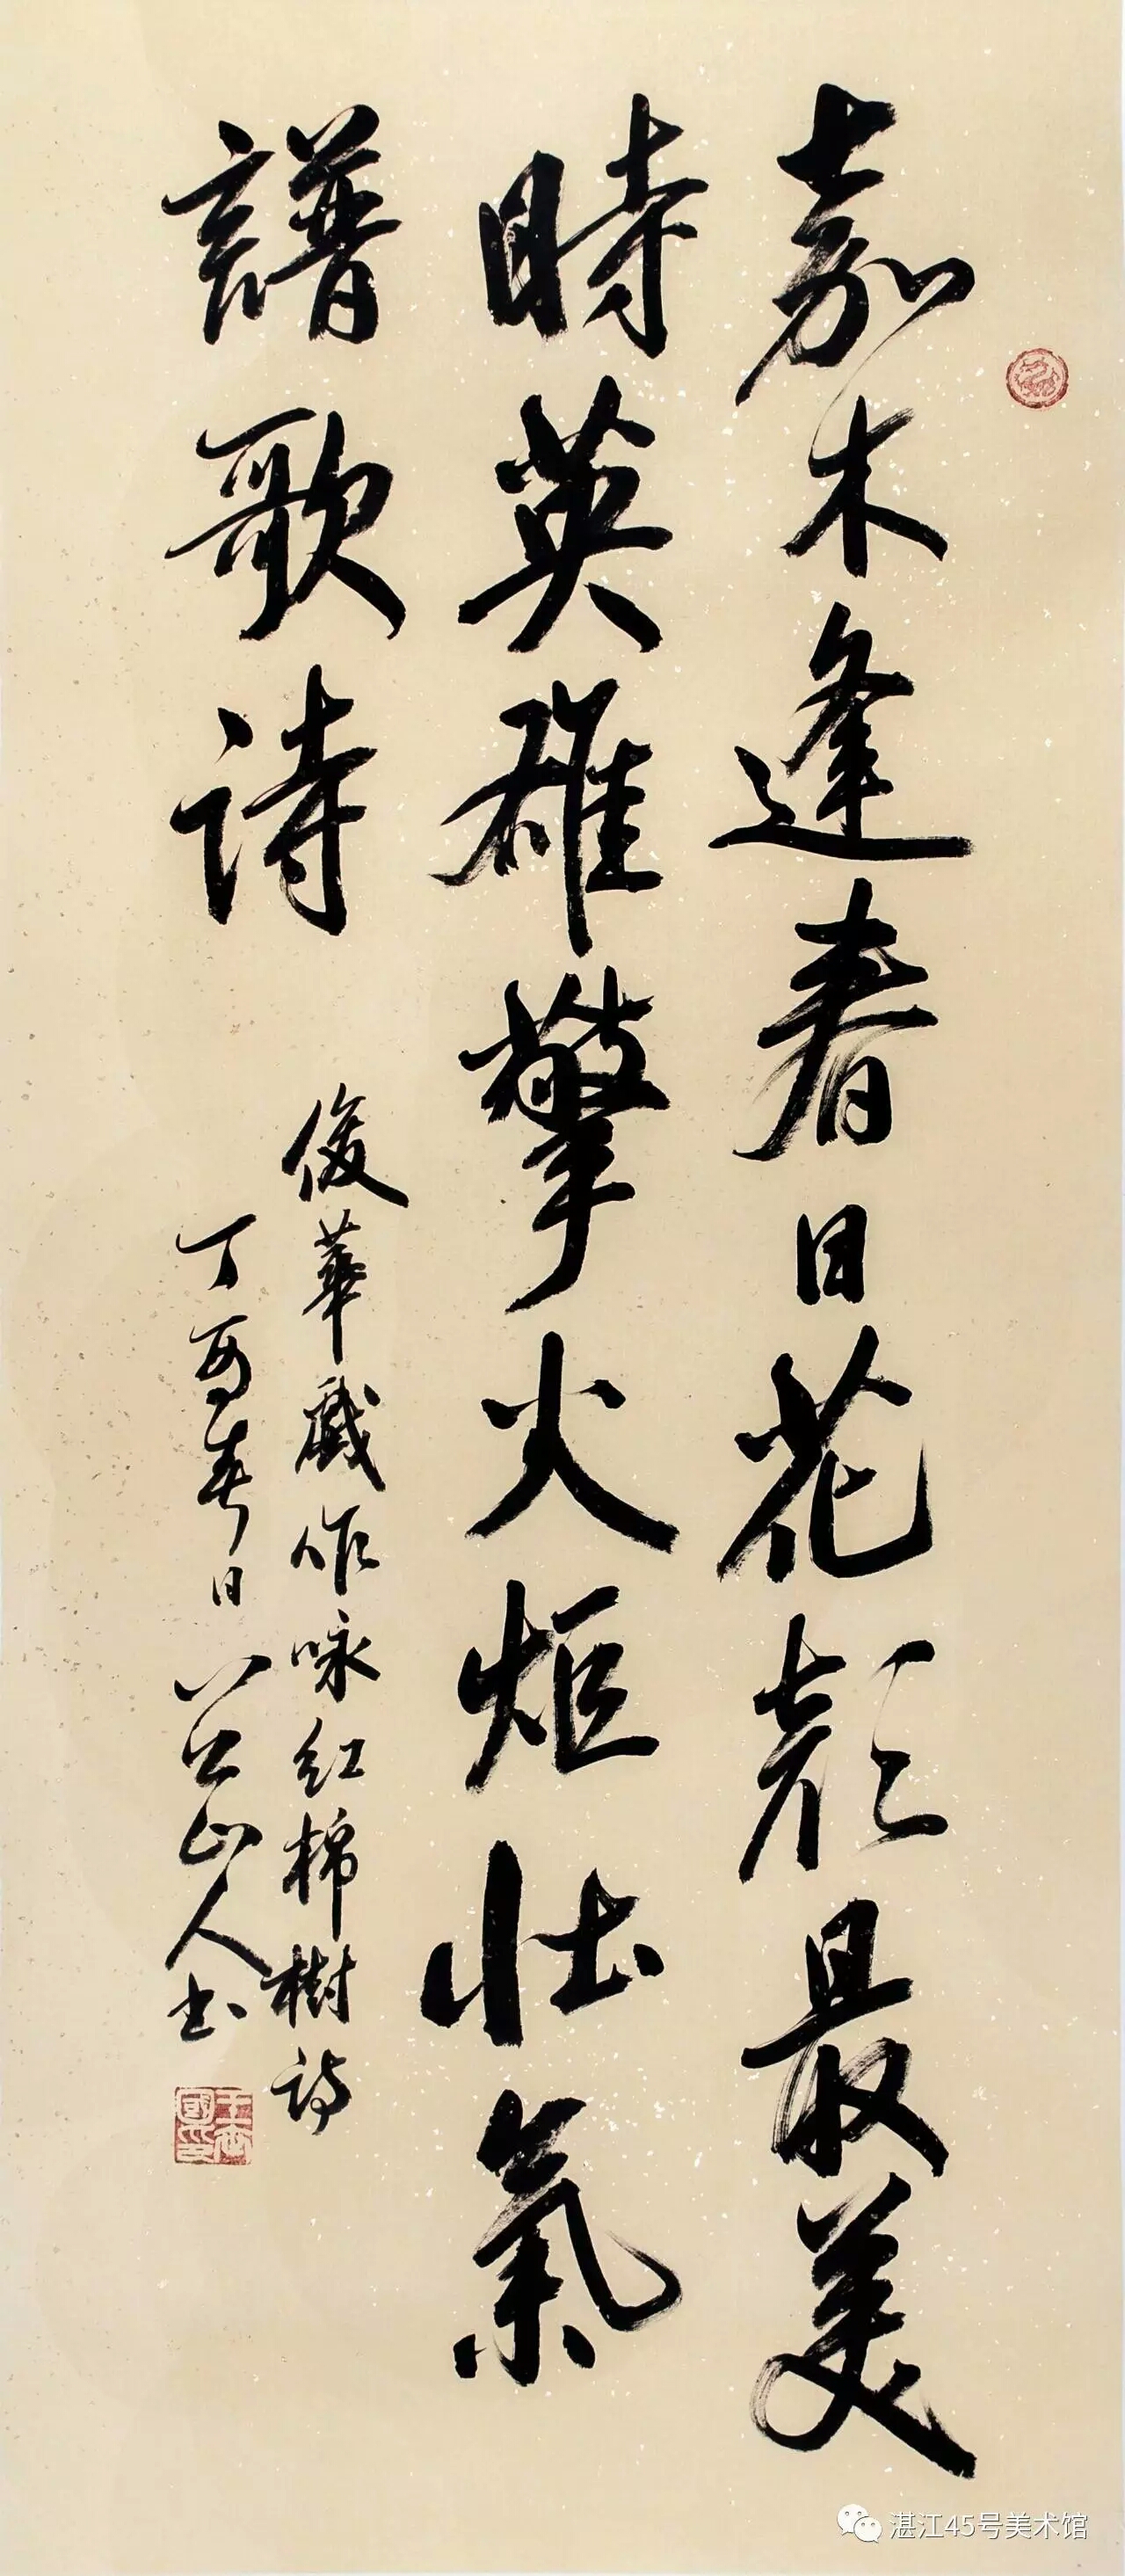 嘉木逢春日花顏最美
時英雄擎火炬壯氣
譜歌詩
俊華戲作咏紅棉樹詩
丁酉春日八公山人书
湛江45号美术馆